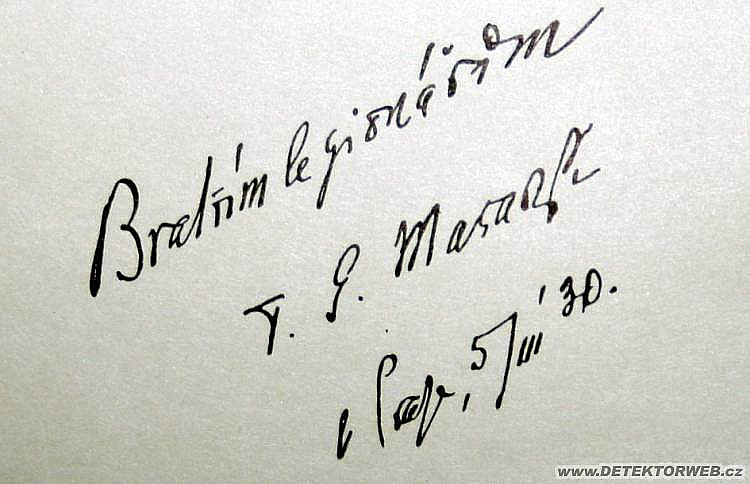 Bratřím legionářům
T. G. Masaryk
v Praze, 5/III 30.
www.DETEKTORWEB.cz